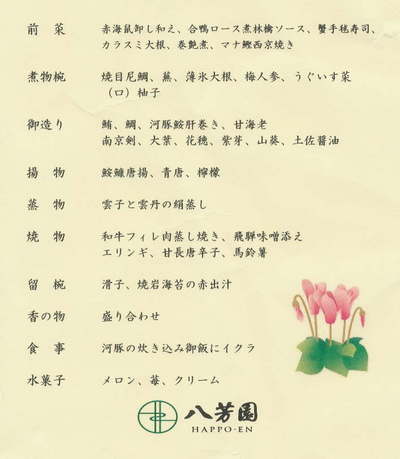 前　菜　赤海鼠卸し和え、合鴨ロース煮林檎ソース、蟹手毬寿司、
カラスミ大根、巻艶煮、マナ鰹西京焼き
煮物椀　焼目尼鯛、蕪、薄氷大根、梅人参、うぐいす菜
（口）柚子
御造り　鮪、鯛、河豚鮟肝巻き、甘海老
南京剣、大葉、花穂、紫芽、山葵、土佐醤油
揚　物　鮟鱇唐揚、青唐、檸檬
蒸　物　雲子と雲丹の絹蒸し
焼　物　和牛フィレ肉蒸し焼き、飛騨味噌添え
エリンギ、甘長唐辛子、馬鈴薯
留　椀　滑子、焼岩海苔の赤出汁
香の物　盛り合わせ
食　事　河豚の炊き込み御飯にイクラ
水菓子　メロン、苺、クリーム
八芳園
HAPPO-EN